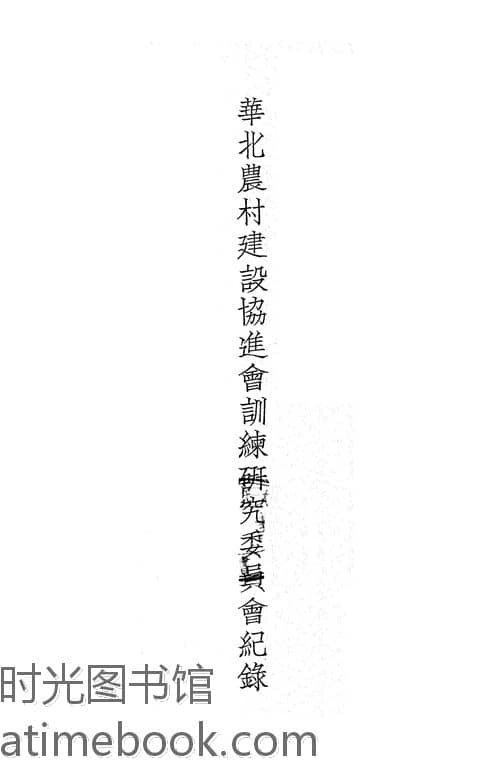 華北農村建設協進會訓練研究委員會紀錄
时光图书馆
atimebook.com